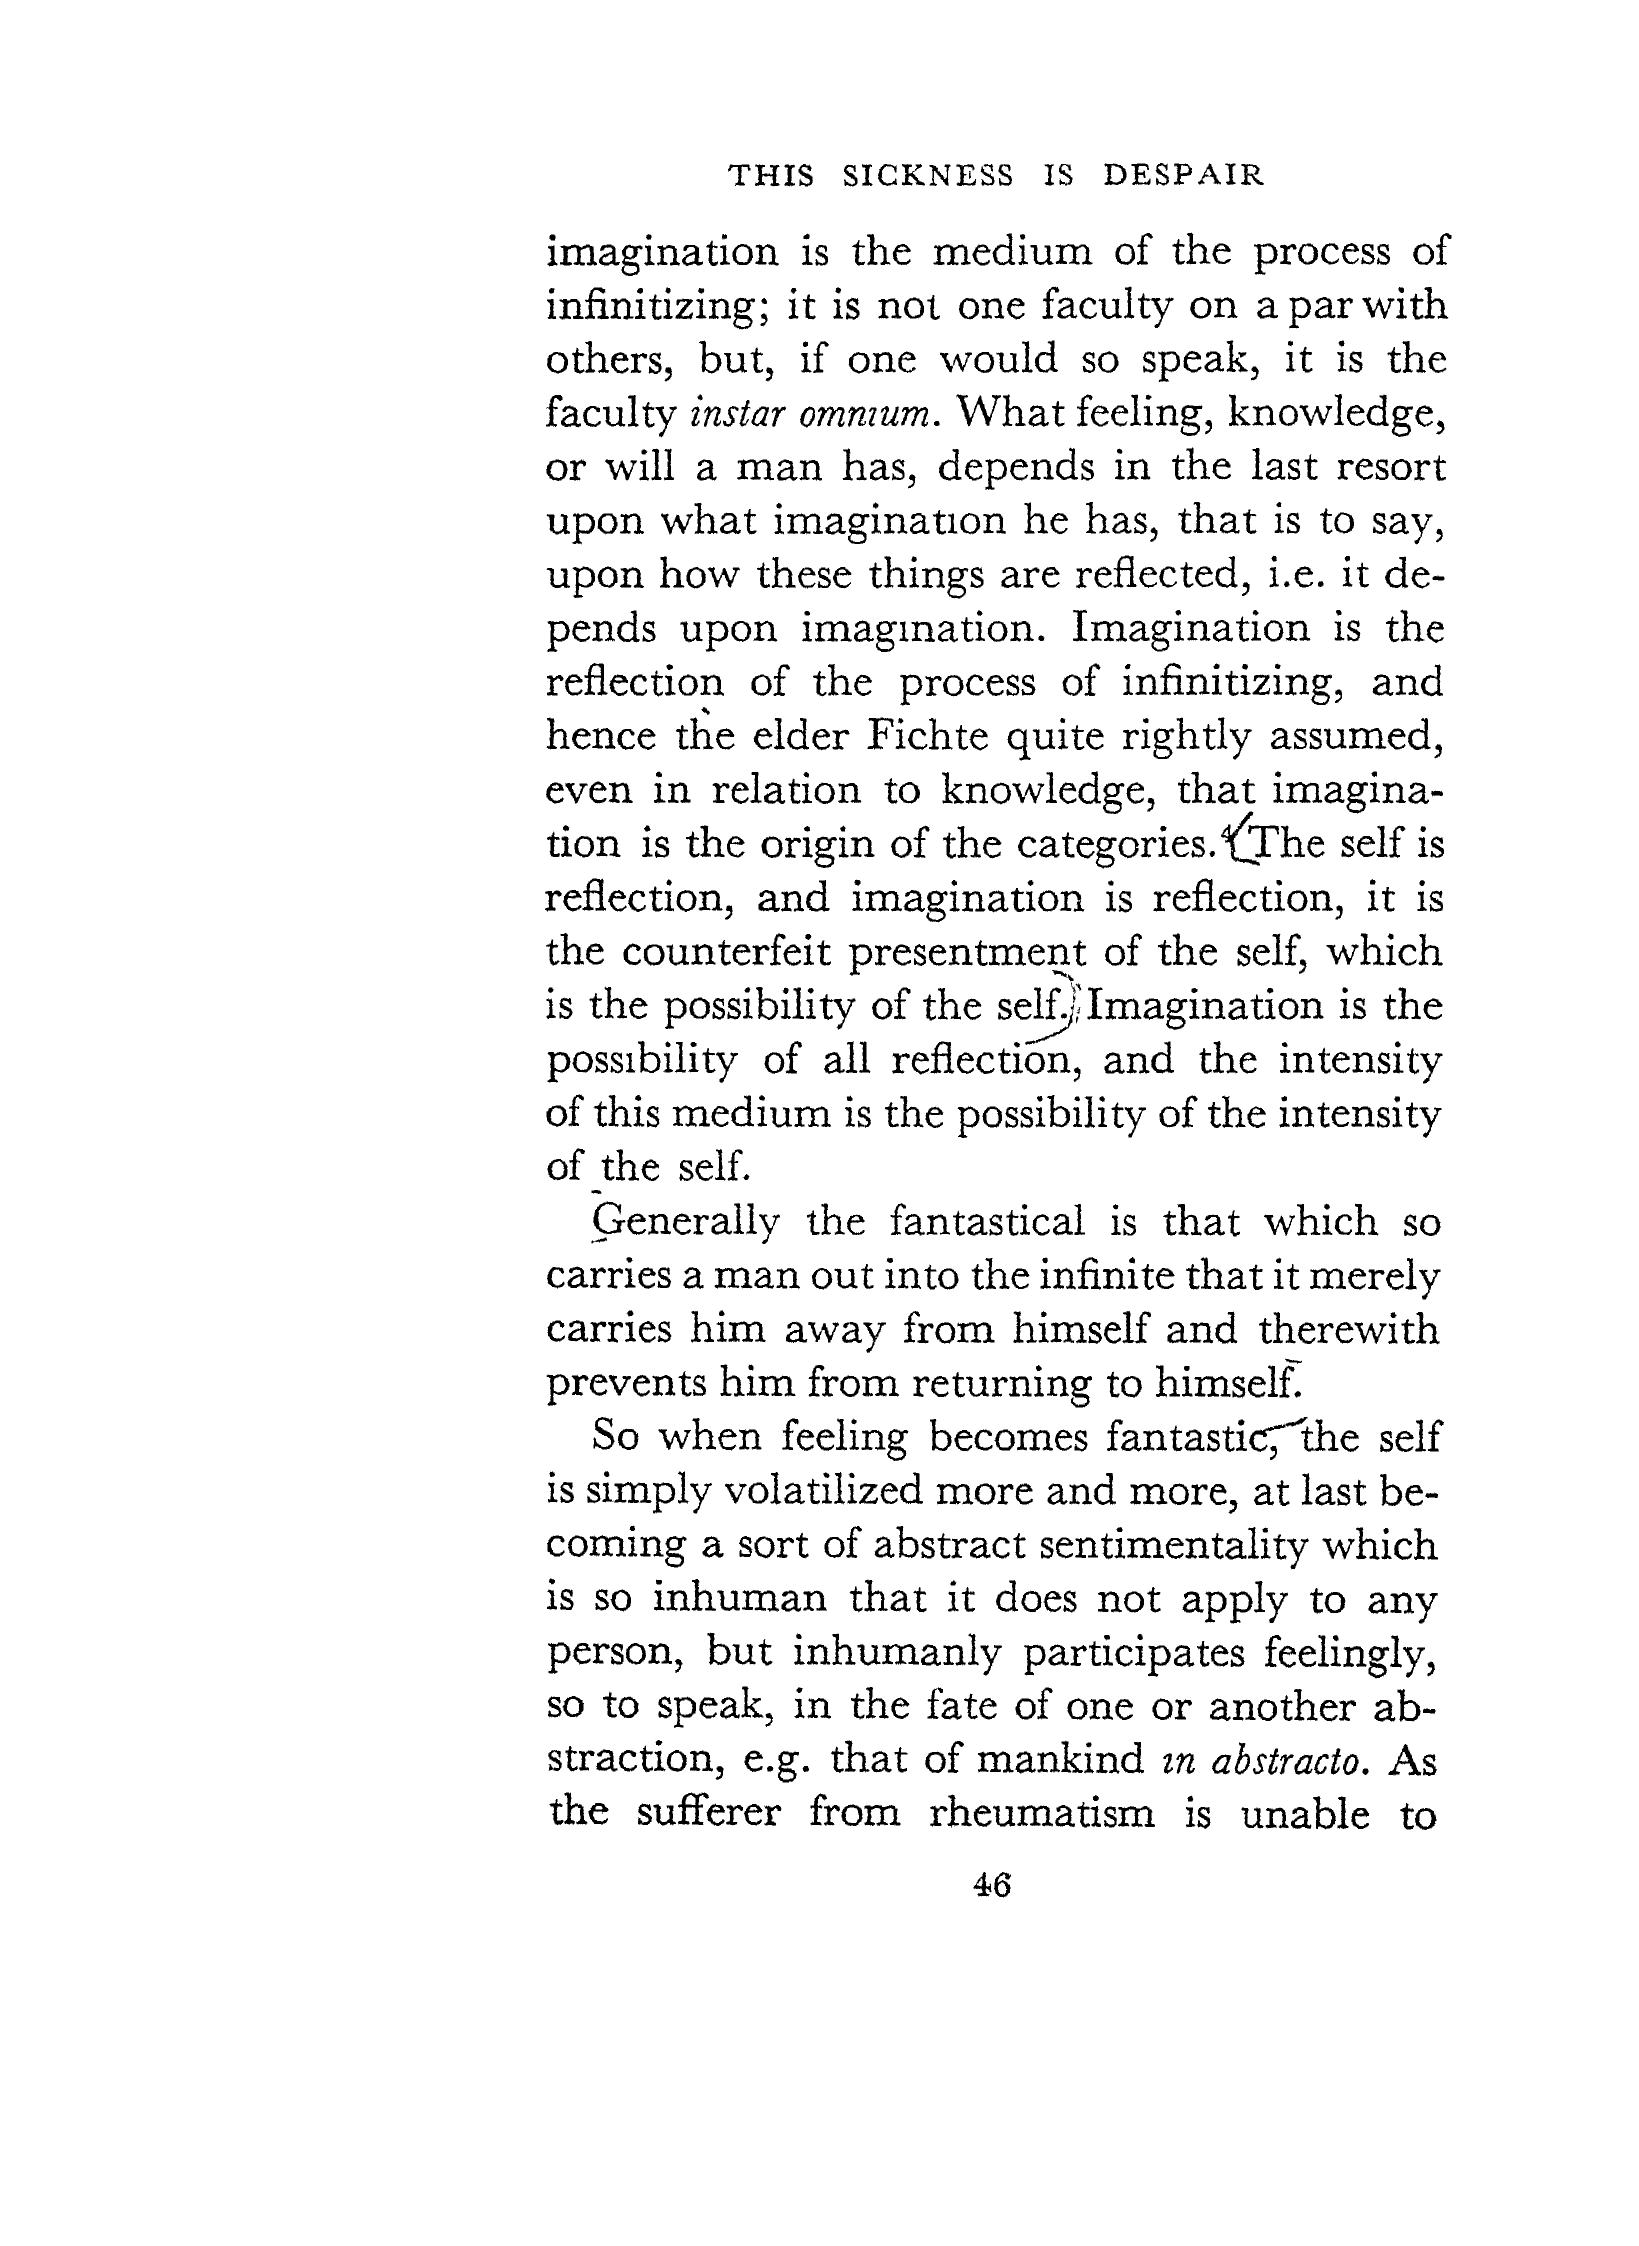 THIS SICKNESS IS DESPAIR
imagination is the medium of the process of
infinitizing; it is not one faculty on a par with
others, but, if one would so speak, it is the
faculty instar omnium. What feeling, knowledge,
or will a man has, depends in the last resort
upon what imagination he has, that is to say,
upon how these things are reflected, i.e. it de-
pends upon imagination. Imagination is the
reflection of the process of infinitizing, and
hence the elder Fichte quite rightly assumed,
even in relation to knowledge, that imagina-
tion is the origin of the categories. The self is
reflection, and imagination is reflection, it is
the counterfeit presentment of the self, which
is the possibility of the self. Imagination is the
possibility of all reflection, and the intensity
of this medium is the possibility of the intensity
of the self.
Generally the fantastical is that which so
carries a man out into the infinite that it merely
carries him away from himself and therewith
prevents him from returning to himself.
So when feeling becomes fantastic, the self
is simply volatilized more and more, at last be-
coming a sort of abstract sentimentality which
is so inhuman that it does not apply to any
person, but inhumanly participates feelingly,
so to speak, in the fate of one or another ab-
straction, e.g. that of mankind in abstracto. As
the sufferer from rheumatism is unable to
46